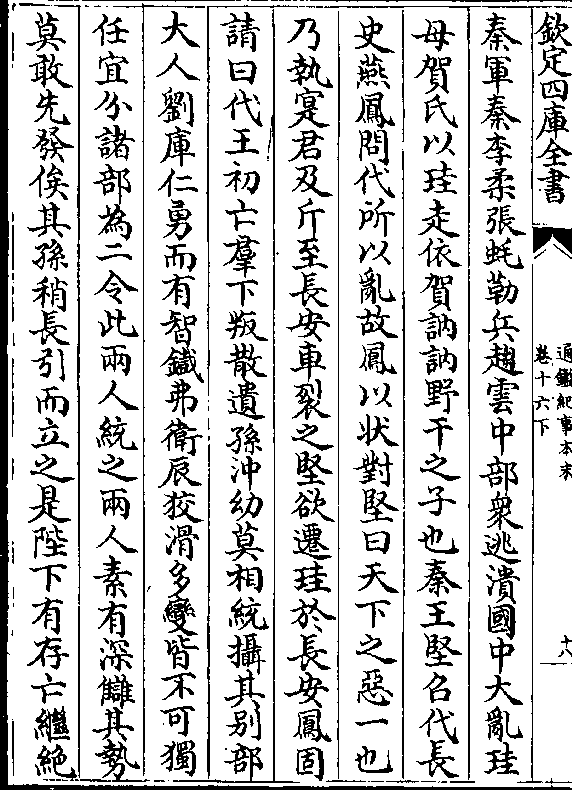 欽定四庫全書
通鑑紀事本末
卷十六下
十八
秦軍秦李柔張蚝勒兵趨雲中部衆逃潰國中大亂珪
母賀氏以珪走依賀訥訥野干之子也秦王堅召代長
史燕鳳問代所以亂故鳳以状對堅曰天下之惡一也
乃執寔君及斤至長安車裂之堅欲遷珪於長安鳳固
請曰代王初亡羣下叛散遺孫沖幼莫相統攝其别部
大人劉庫仁勇而有智鐡弗衛辰狡滑多變皆不可獨
任宜分諸部為二令此兩人統之兩人素有深讎其勢
莫敢先發俟其孫稍長引而立之是陛下有存亡繼絶